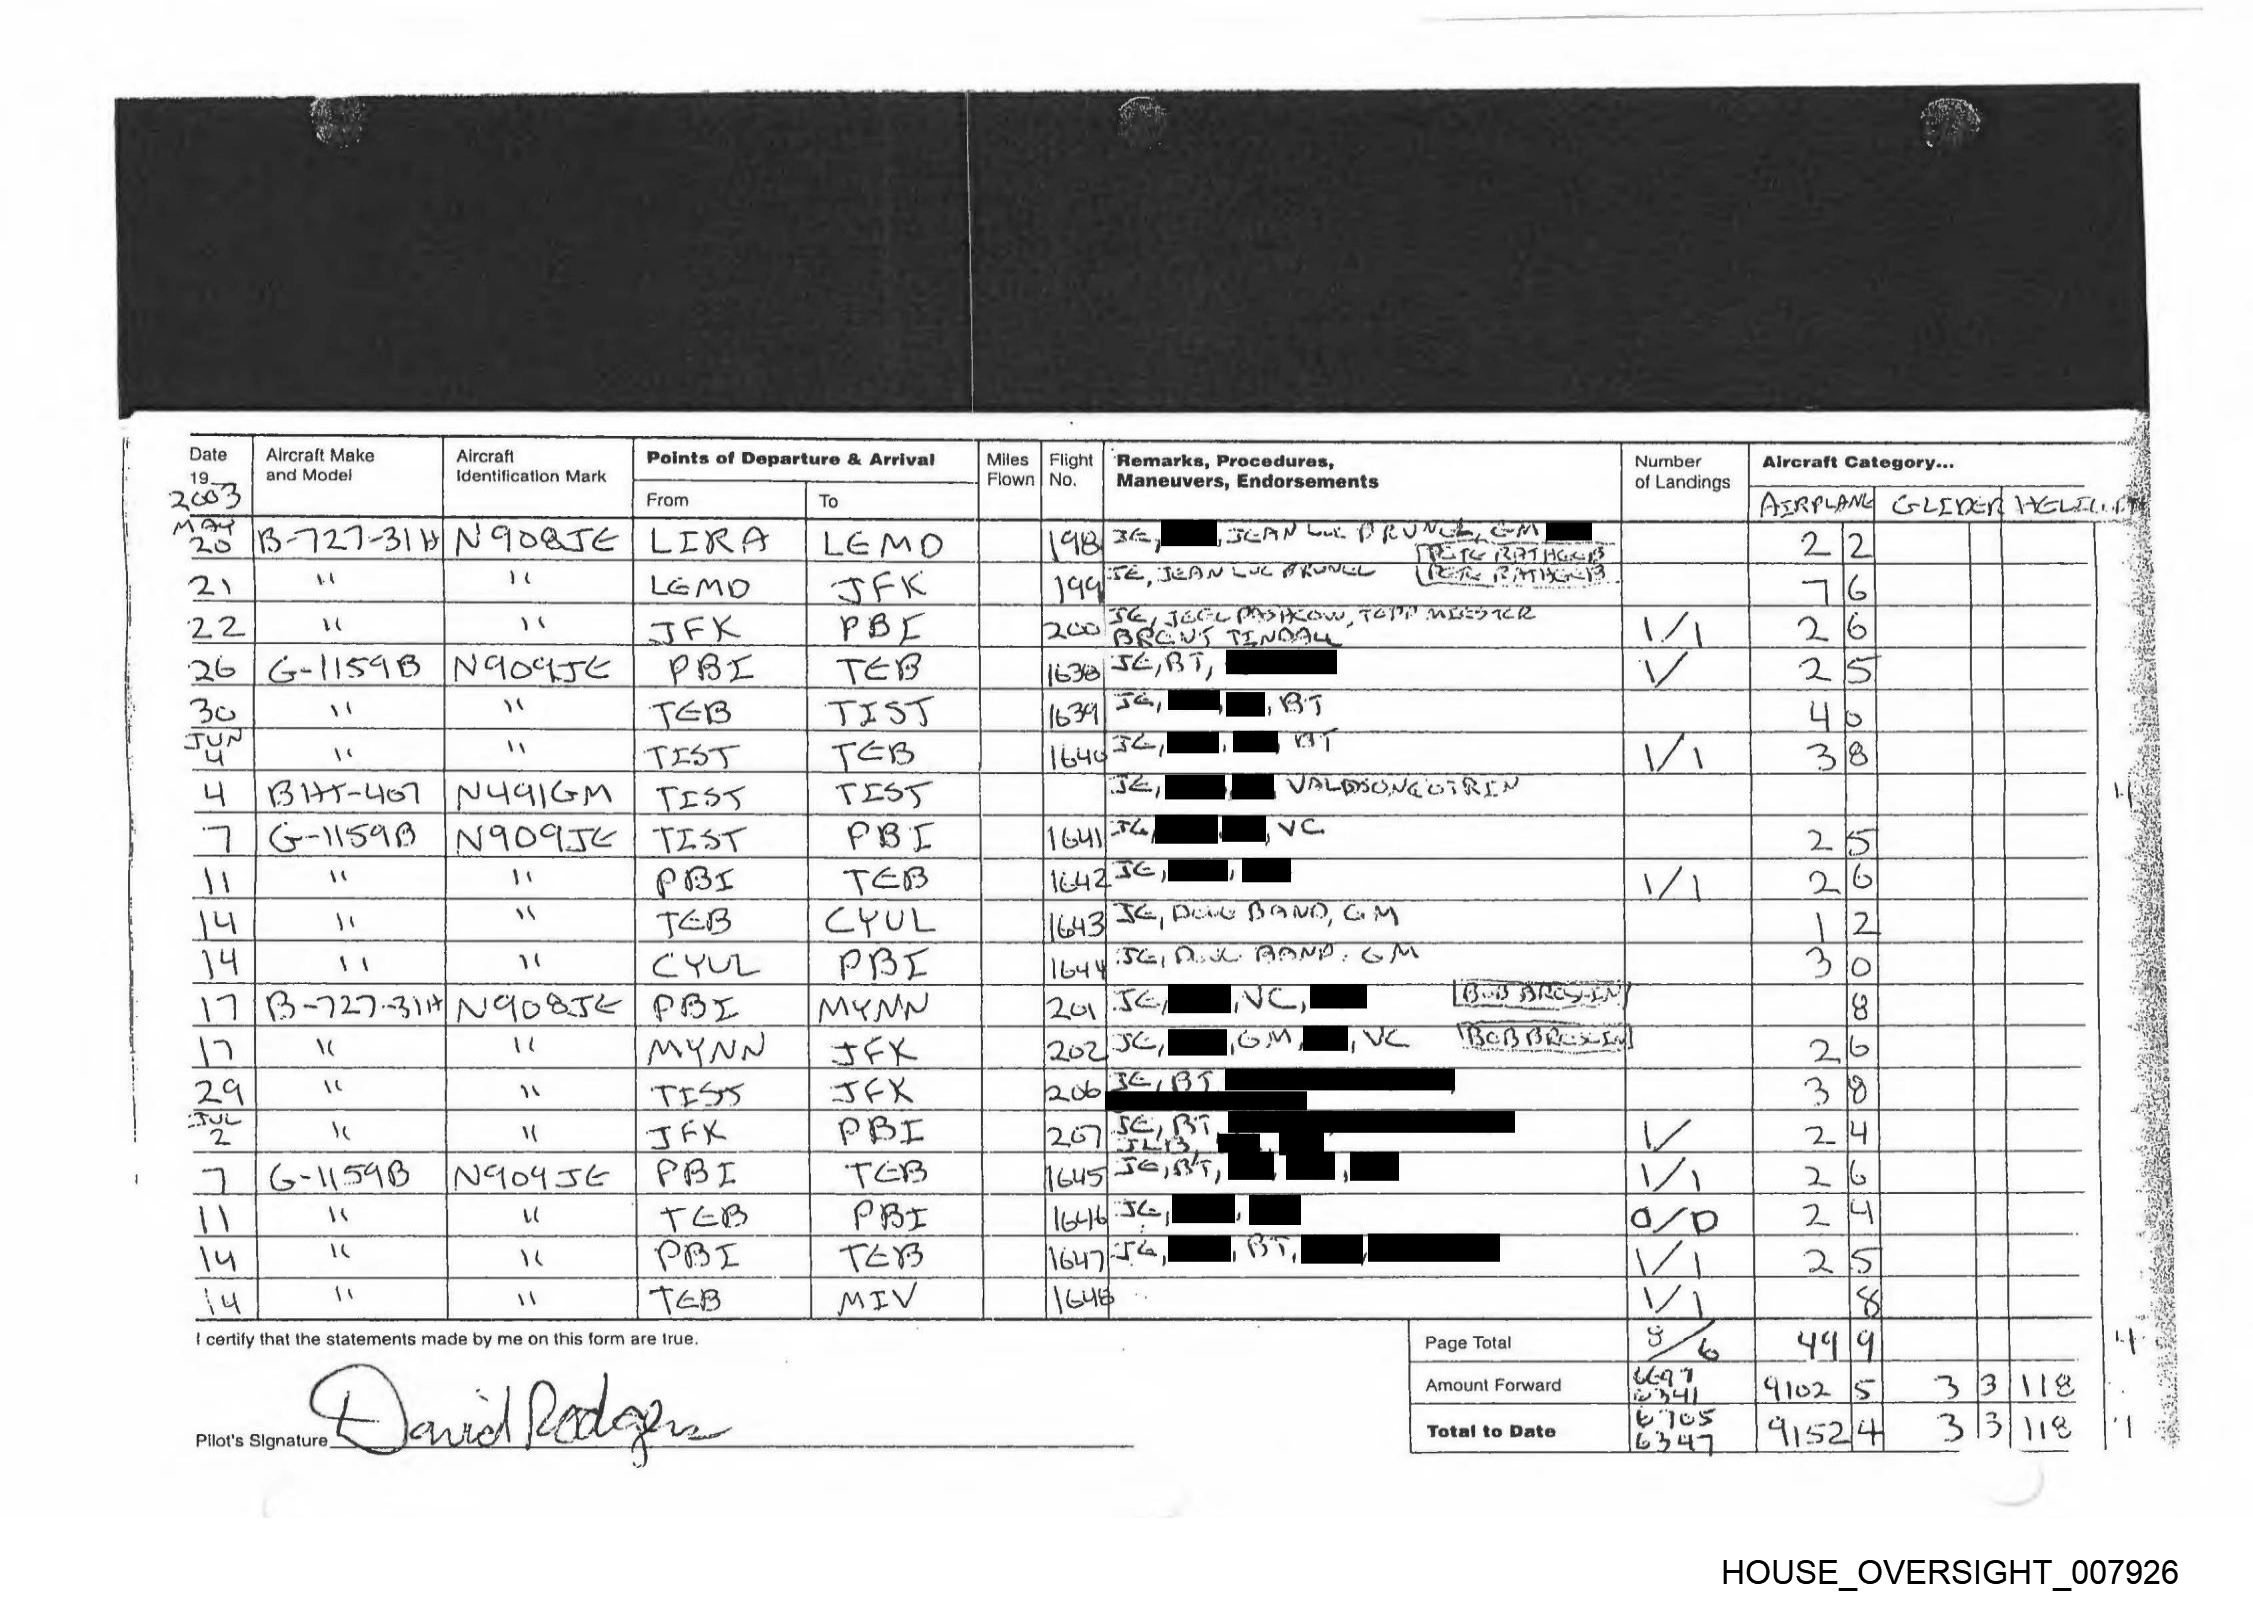 Date 19__ 2003 Aircraft Make and Model Aircraft Identification Mark Points of Departure & Arrival From To Miles Flown Flight No. Remarks, Procedures, Maneuvers, Endorsements Number of Landings Aircraft Category... AIRPLANE GLIDER
MAY 20 B-727-31H N908JE LIRA LEMD 198 JE, , JEAN LUC BRUNEL, GM PETE RATHGEB 2 2
21 " " LEMD JFK 199 JE, JEAN LUC BRUNEL PETE RATHGEB 7 6
22 " " JFK PBI 200 JE, PASHCOW, TOPP MEISTER 1/1 2 6
BRENT TINDALL
26 G-1159B N909JE PBI TEB 1638 JE, BT, 1/ 2 5
30 " " TEB TIST 1639 JE, , , BT 4 0
JUN 4 " " TIST TEB 1640 JE, , , BT 1/1 3 8
4 BHT-407 N491GM TIST TIST JE,
7 G-1159B N909JE TIST PBI 1641 JE, , VC 2 5
11 " " PBI TEB 1642 JE, , 1/1 2 6
14 " " TEB CYUL 1643 JE, DOUG BAND, GM 1 2
14 " " CYUL PBI 1644 JE, DOUG BAND, GM 3 0
17 B-727-31H N908JE PBI MYNN 201 JE, , VC, 8
17 " " MYNN JFK 202 JE, , GM, , VC 2 6
29 " " TISJ JFK 206 JE, BT 3 8
JUL 2 " " JFK PBI 207 JE, BT, 1/ 2 4
JLB
7 G-1159B N909JE PBI TEB 1645 JE, BT, , , 1/1 2 6
11 " " TEB PBI 1646 JE, , 0/0 2 4
14 " " PBI TEB 1647 JE, , BT, , 1/1 2 5
14 " " TEB MIV 1648 1/1 8
I certify that the statements made by me on this form are true.
Page Total 8/6 49 9
Amount Forward 6697 6341 9102 5 3 3 118
Total to Date 6705 6347 9152 4 3 3 118
Pilot's Signature David Rodgers
HOUSE_OVERSIGHT_007926